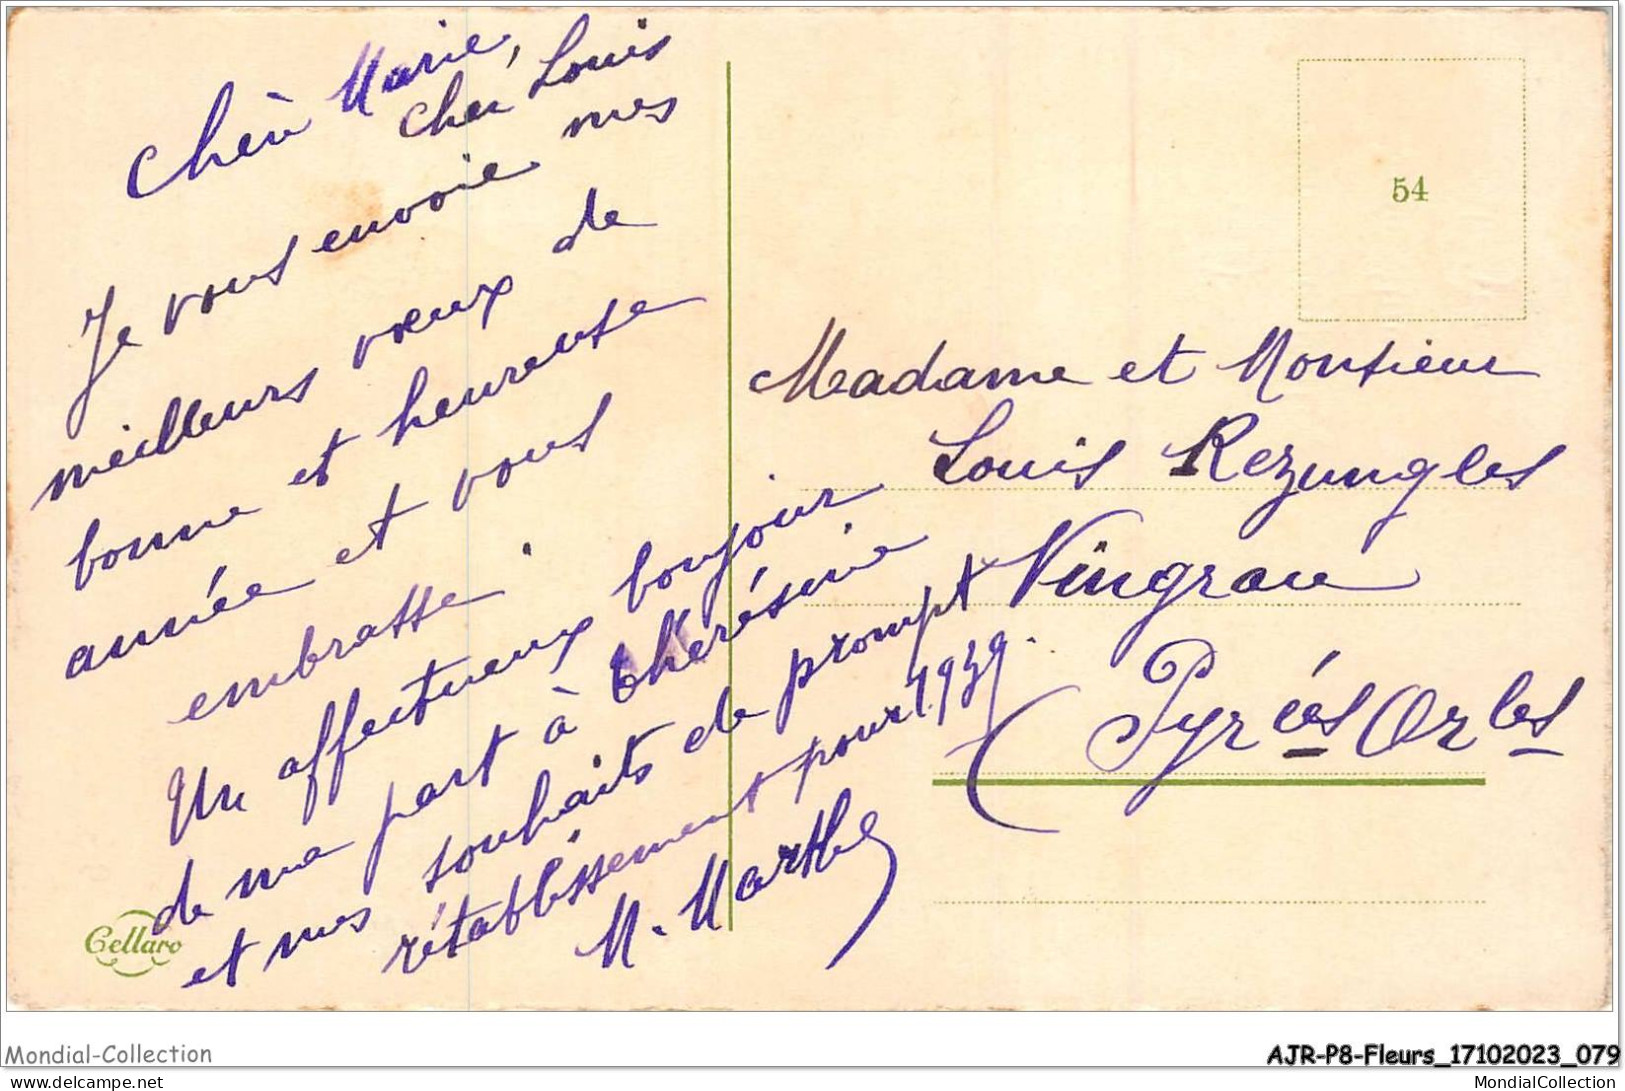 Chère Marie,
Cher Louis
Je vous envoie mes
meilleurs vœux de
bonne et heureuse
année et vous
embrasse.
Un affectueux bonjour
de ma part à Thérésine
et mes souhaits de prompt
rétablissement pour 1939.
M. Marthe
54
Madame et Monsieur
Louis Rezungles
Vingrau
(Pyrées Orles
Cellaro
Mondial-Collection
AJR-P8-Fleurs_17102023_079
www.delcampe.net
MondialCollection